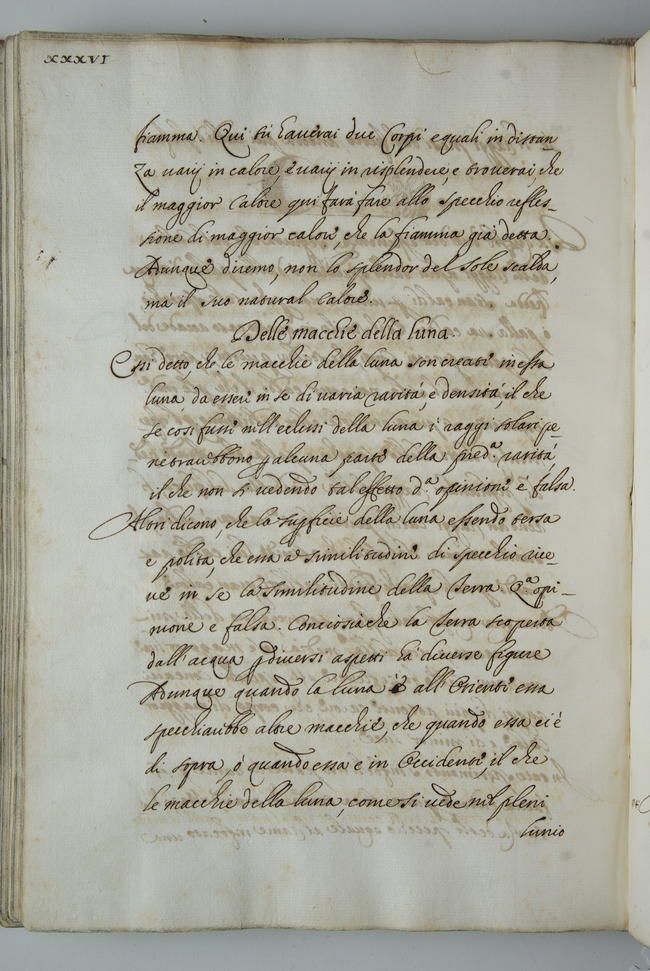 XXXVI
fiamma. Qui tù haverai due Corpi equali in distan-
za varij in calore, e varij in risplendere, e troverai, che
il maggior Calore qui farà fare allo specchio refles-
sione di maggior calore, che la fiamma già detta.
Dunque diremo, non lo splendor del Sole scalda,
mà il suo natural Calore.
Delle macchie della luna
Essi detto, che le macchie della luna son create in essa
luna, da esser in se di varia rarità, e densità, il che
se cosi fusse nell'eclissi della luna i raggi solari pe-
netrarebbono p alcuna parte della pred.ª rarità
il che non si vedendo tal effetto d.ª opinione è falsa.
Altri dicono, che la supficie della luna essendo tersa
e polita, che essa a similitudine di specchio rice-
ve in se la similitudine della Terra. Q.ª opi-
nione e falsa. Conciosiache la Terra scoperta
dall'acqua p diversi aspetti hà diverse figure
Dunque quando la luna è all'Oriente essa
specchiarebbe altre macchie, che quando essa ci è
di sopra, ò quando essa e in Occidente, il che
le macchie della luna, come si vede nel pleni
lunio